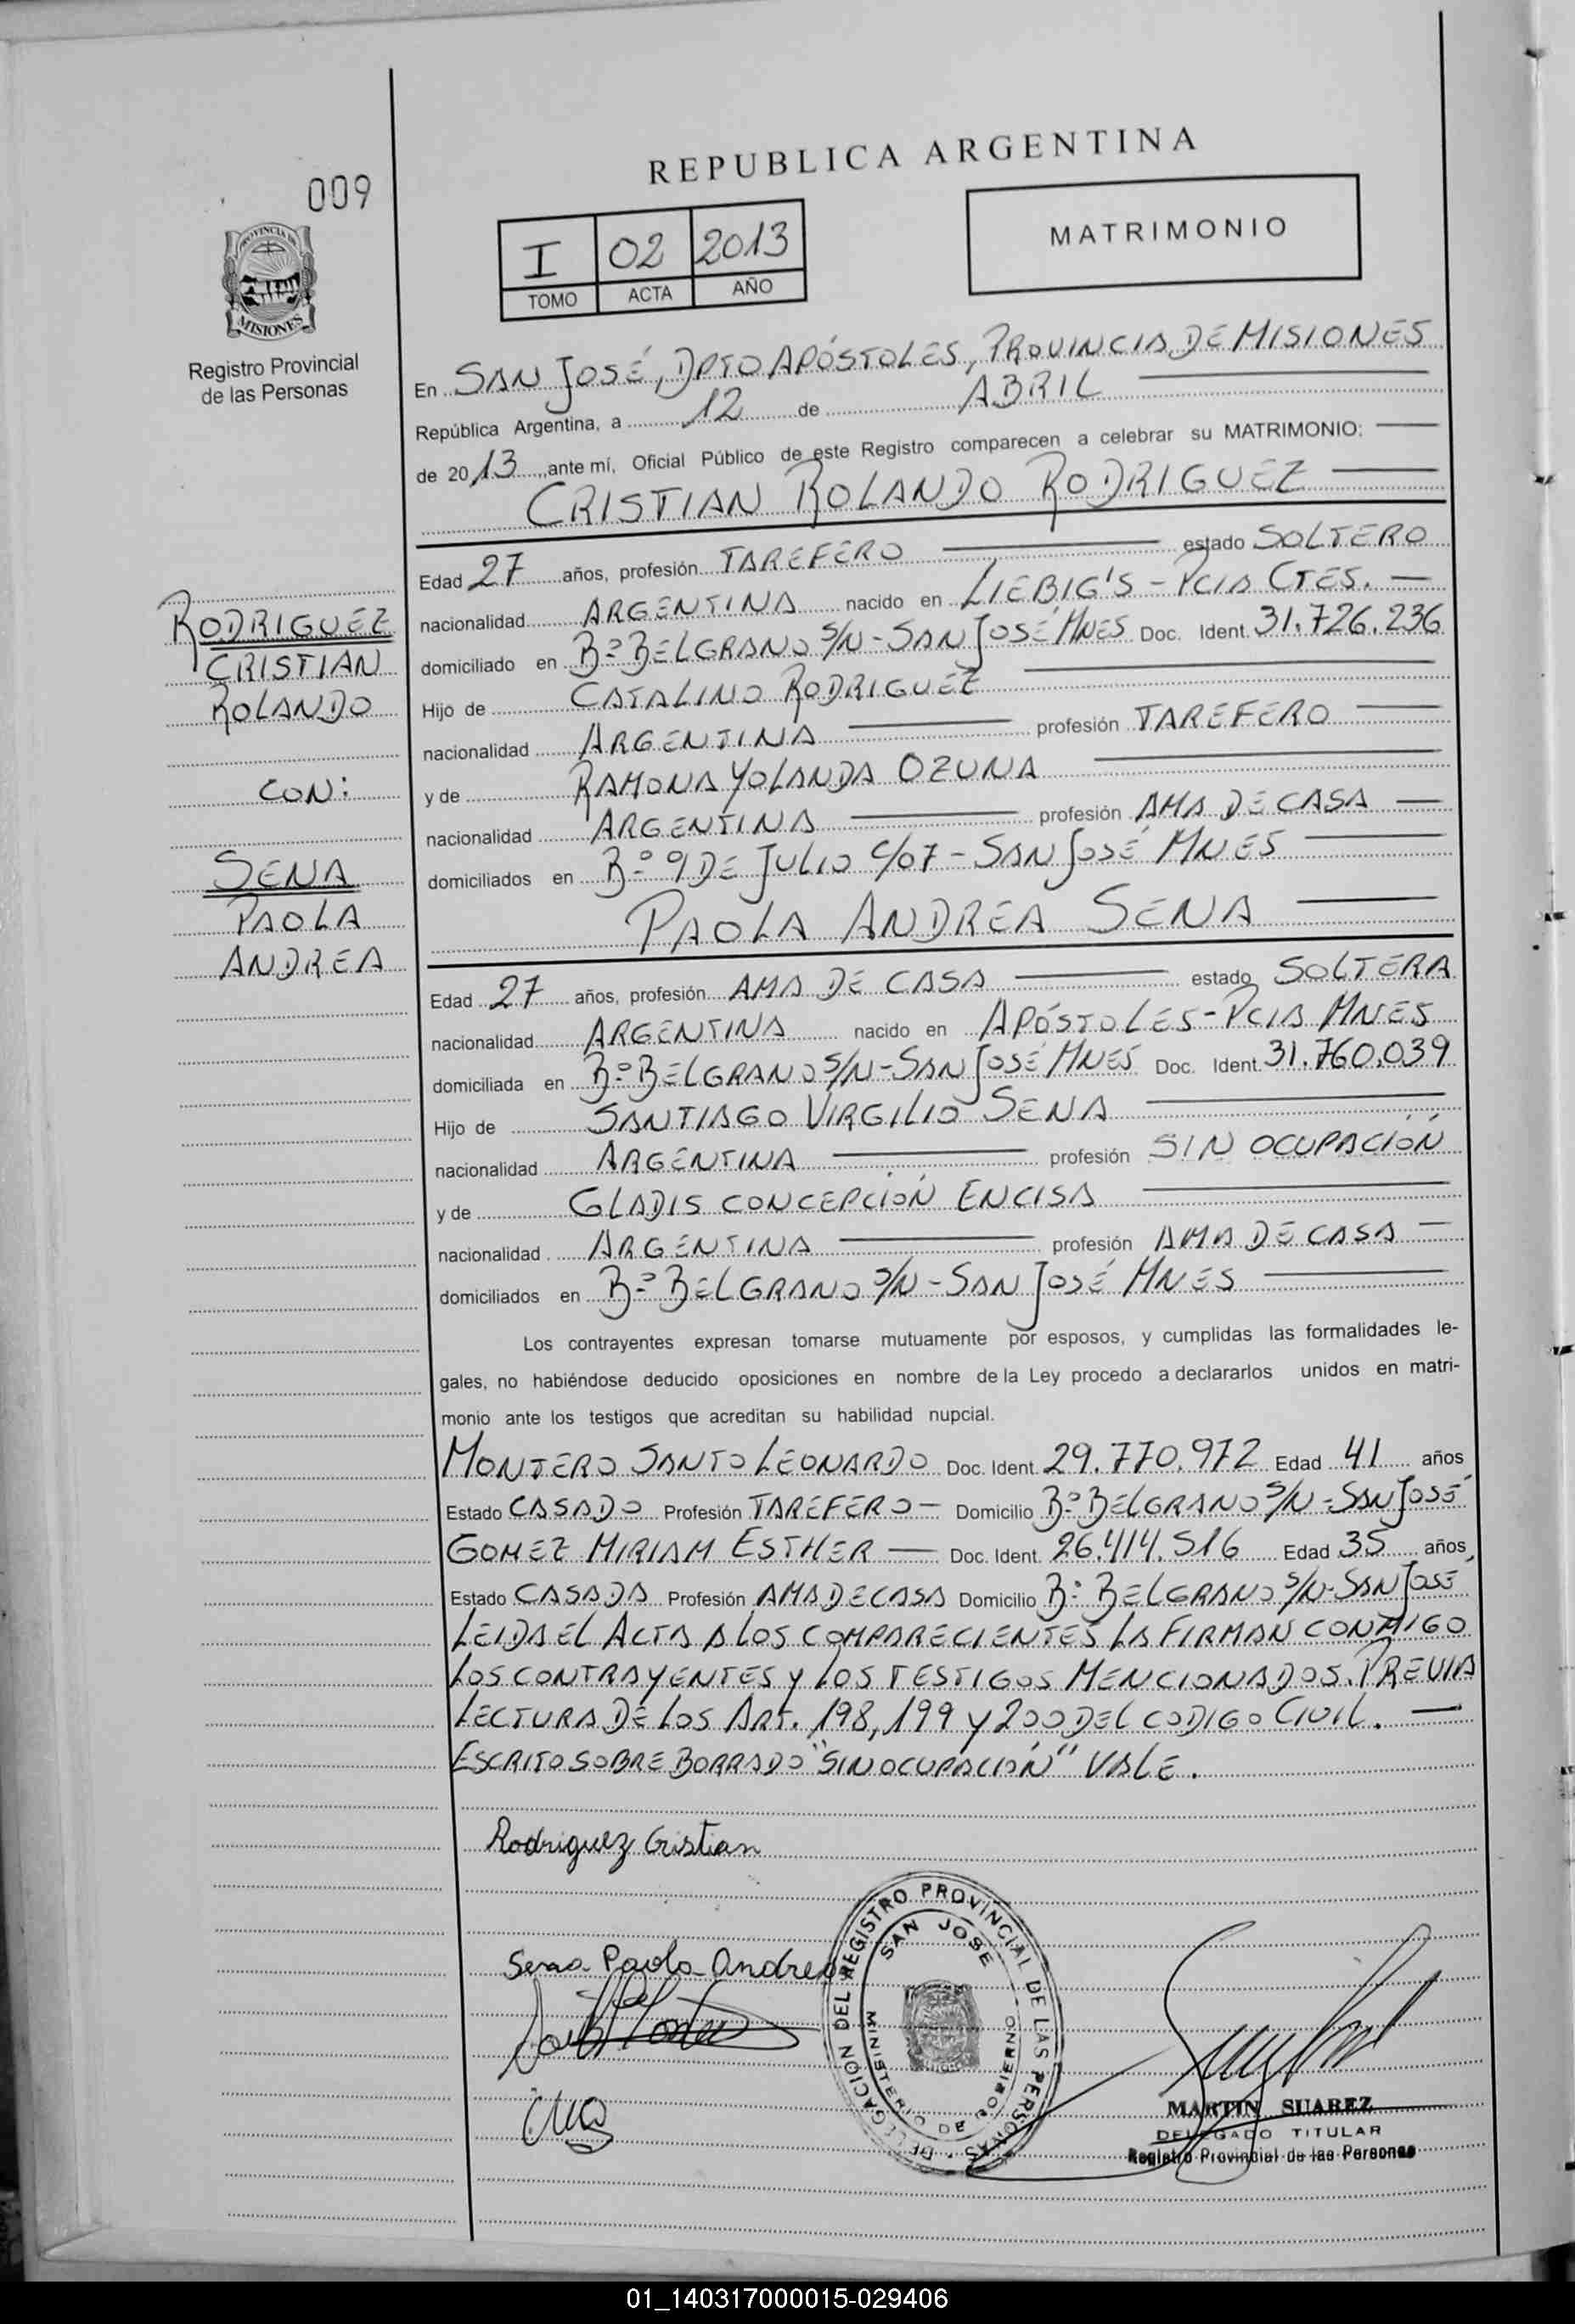 REPUBLICA ARGENTINA
009
I 02 2013
TOMO ACTA AÑO
MATRIMONIO
PROVINCIA DE
MISIONES
Registro Provincial
de las Personas
En SAN JOSÉ, DPTO APÓSTOLES, PROVINCIA DE MISIONES
República Argentina, a 12 de ABRIL
de 2013, ante mí, Oficial Público de este Registro comparecen a celebrar su MATRIMONIO:
CRISTIAN ROLANDO RODRIGUEZ
Edad 27 años, profesión TAREFERO estado SOLTERO
nacionalidad ARGENTINA nacido en LIEBIG'S - PCIA CTES.
domiciliado en Bº BELGRANO S/N - SAN JOSÉ MNES Doc. Ident. 31.726.236
Hijo de CATALINO RODRIGUEZ
nacionalidad ARGENTINA profesión TAREFERO
y de RAMONA YOLANDA OZUNA
nacionalidad ARGENTINA profesión AMA DE CASA
domiciliados en Bº 9 DE JULIO C/07 - SAN JOSÉ MNES
RODRIGUEZ
CRISTIAN
ROLANDO
CON:
SENA
PAOLA
ANDREA
PAOLA ANDREA SENA
Edad 27 años, profesión AMA DE CASA estado SOLTERA
nacionalidad ARGENTINA nacido en APÓSTOLES - PCIA MNES
domiciliada en Bº BELGRANO S/N - SAN JOSÉ MNES Doc. Ident. 31.760.039
Hijo de SANTIAGO VIRGILIO SENA
nacionalidad ARGENTINA profesión SIN OCUPACIÓN
y de GLADIS CONCEPCIÓN ENCISA
nacionalidad ARGENTINA profesión AMA DE CASA
domiciliados en Bº BELGRANO S/N - SAN JOSÉ MNES
Los contrayentes expresan tomarse mutuamente por esposos, y cumplidas las formalidades le-
gales, no habiéndose deducido oposiciones en nombre de la Ley procedo a declararlos unidos en matri-
monio ante los testigos que acreditan su habilidad nupcial.
MONTERO SANTO LEONARDO Doc. Ident. 29.770.972 Edad 41 años
Estado CASADO Profesión TAREFERO - Domicilio Bº BELGRANO S/N - SAN JOSÉ
GOMEZ MIRIAM ESTHER Doc. Ident. 26.414.516 Edad 35 años
Estado CASADA Profesión AMA DE CASA Domicilio Bº BELGRANO S/N - SAN JOSÉ
LEIDA EL ACTA A LOS COMPARECIENTES LA FIRMAN CONMIGO
LOS CONTRAYENTES Y LOS TESTIGOS MENCIONADOS. PREVIA
LECTURA DE LOS ART. 198, 199 Y 200 DEL CODIGO CIVIL.
ESCRITO SOBRE BORRADO "SIN OCUPACIÓN" VALE.
Rodriguez Cristian
Sena Paola Andrea
DELEGACIÓN DEL REGISTRO PROVINCIAL DE LAS PERSONAS
SAN JOSE
MINISTERIO DE GOBIERNO
MARTIN SUAREZ
DELEGADO TITULAR
Registro Provincial de las Personas
01_140317000015-029406